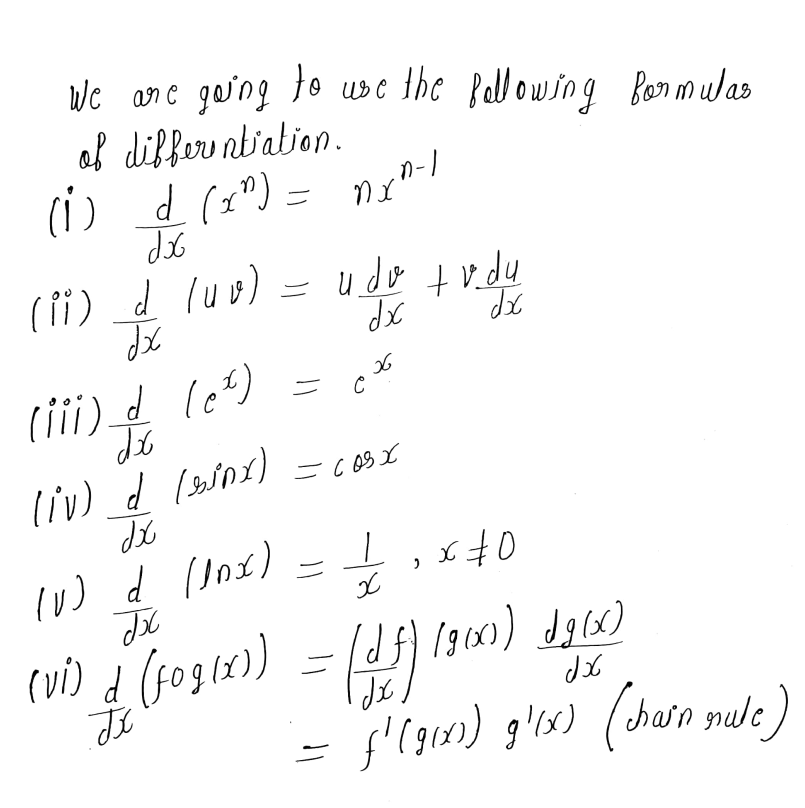 We are going to use the following formulas
of differentiation.
(i) d/dx (x^n) = nx^(n-1)
(ii) d/dx (uv) = u dv/dx + v du/dx
(iii) d/dx (e^x) = e^x
(iv) d/dx (sinx) = cosx
(v) d/dx (lnx) = 1/x , x ≠ 0
(vi) d/dx (fog(x)) = (df/dx) (g(x)) dg(x)/dx
= f'(g(x)) g'(x) (chain rule)